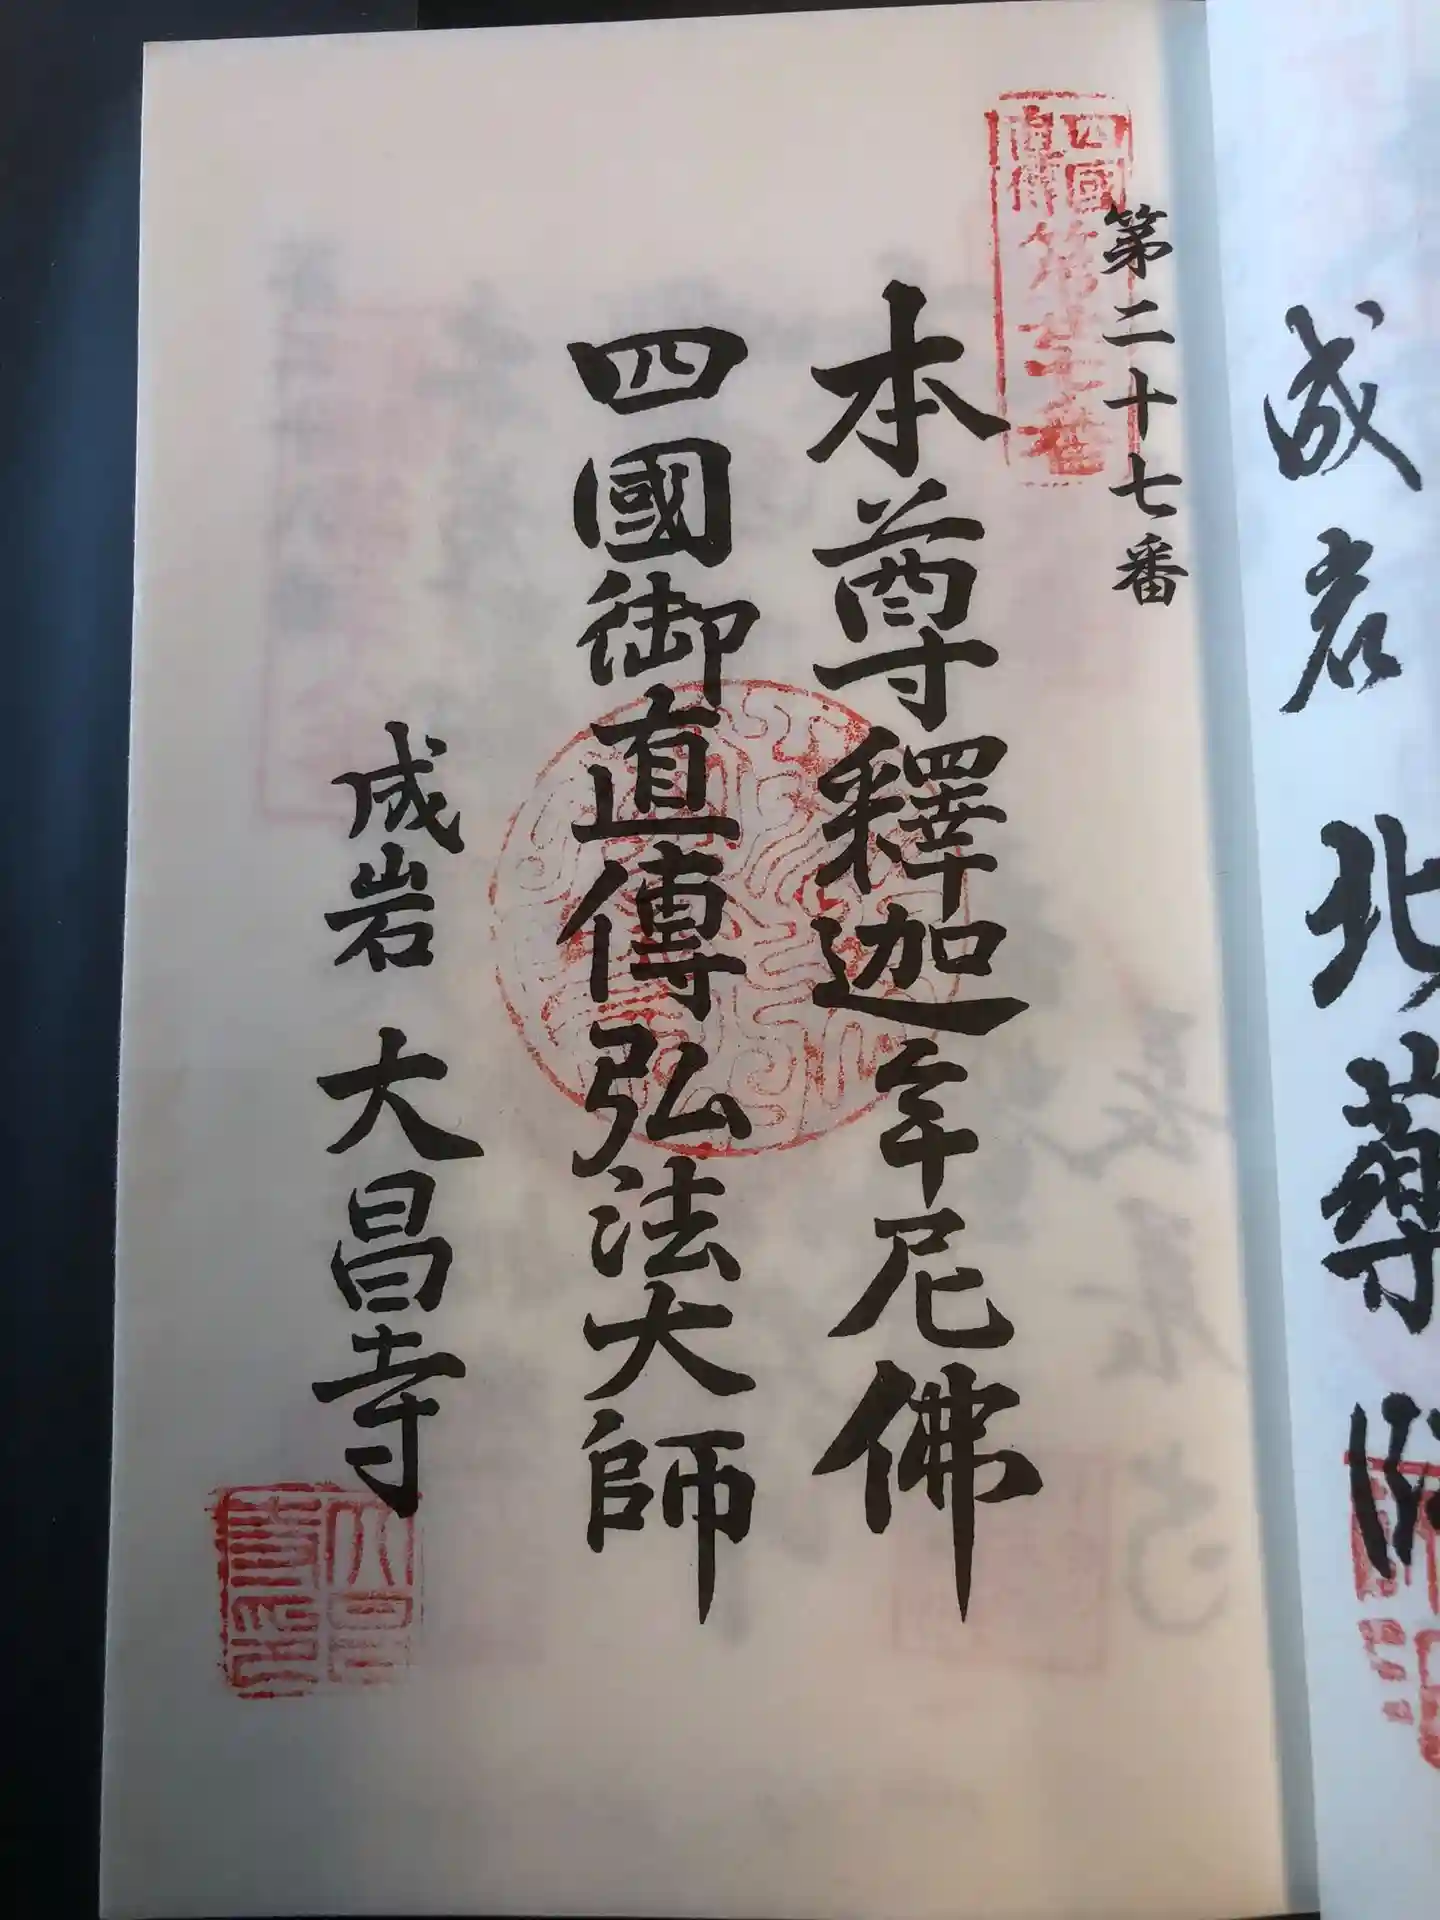 成岩北薬師
四國
直傳
第廿七番
第二十七番
本尊釋迦牟尼佛
四國御直傳弘法大師
成岩 大昌寺
大昌
寺印